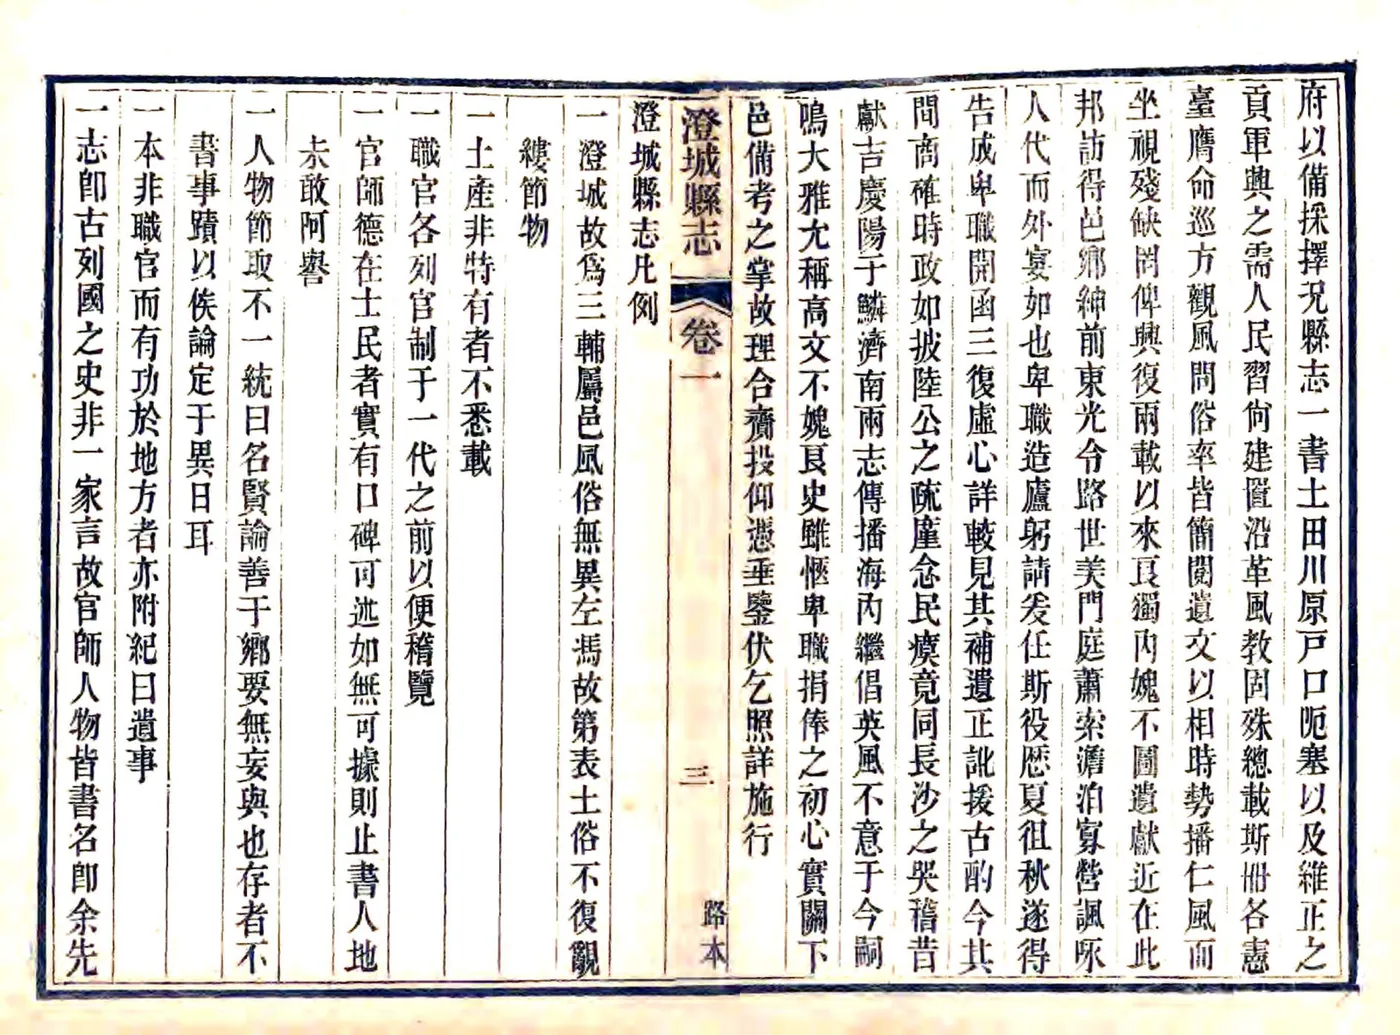 府以備採擇况縣志一書土田川原戸口阨塞以及維正之
貢軍興之需人民習尙建置沿革風教固殊總載斯冊各憲
臺膺命巡方觀風問俗率皆簡閱遺文以相時勢播仁風而
坐視殘缺罔俾興復兩載以來良獨内媿不圖遺獻近在此
邦訪得邑鄉紳前東光令路世美門庭蕭索澹泊寡營諷咏
人代而外宴如也卑職造廬躬請爰任斯役歷夏徂秋遂得
告成卑職開函三復虛心詳較見其補遺正訛援古酌今其
間商確時政如披陸公之疏廑念民瘼竟同長沙之哭稽昔
獻吉慶陽于鱗濟南兩志傳播海内繼倡英風不意于今嗣
鳴大雅允稱高文不媿良史雖愜卑職捐俸之初心實關下
邑備考之掌故理合賫投仰憑垂鑒伏乞照詳施行
澄城縣志
卷一
三
路本
澄城縣志凡例
一澄城故爲三輔屬邑風俗無異左馮故第表土俗不復覼
縷節物
一土產非特有者不悉載
一職官各列官制于一代之前以便稽覽
一官師德在士民者實有口碑可述如無可據則止書人地
未敢阿譽
一人物節取不一統曰名賢論善于鄉要無妄與也存者不
書事蹟以俟論定于異日耳
一本非職官而有功於地方者亦附紀曰遺事
一志卽古列國之史非一家言故官師人物皆書名卽余先